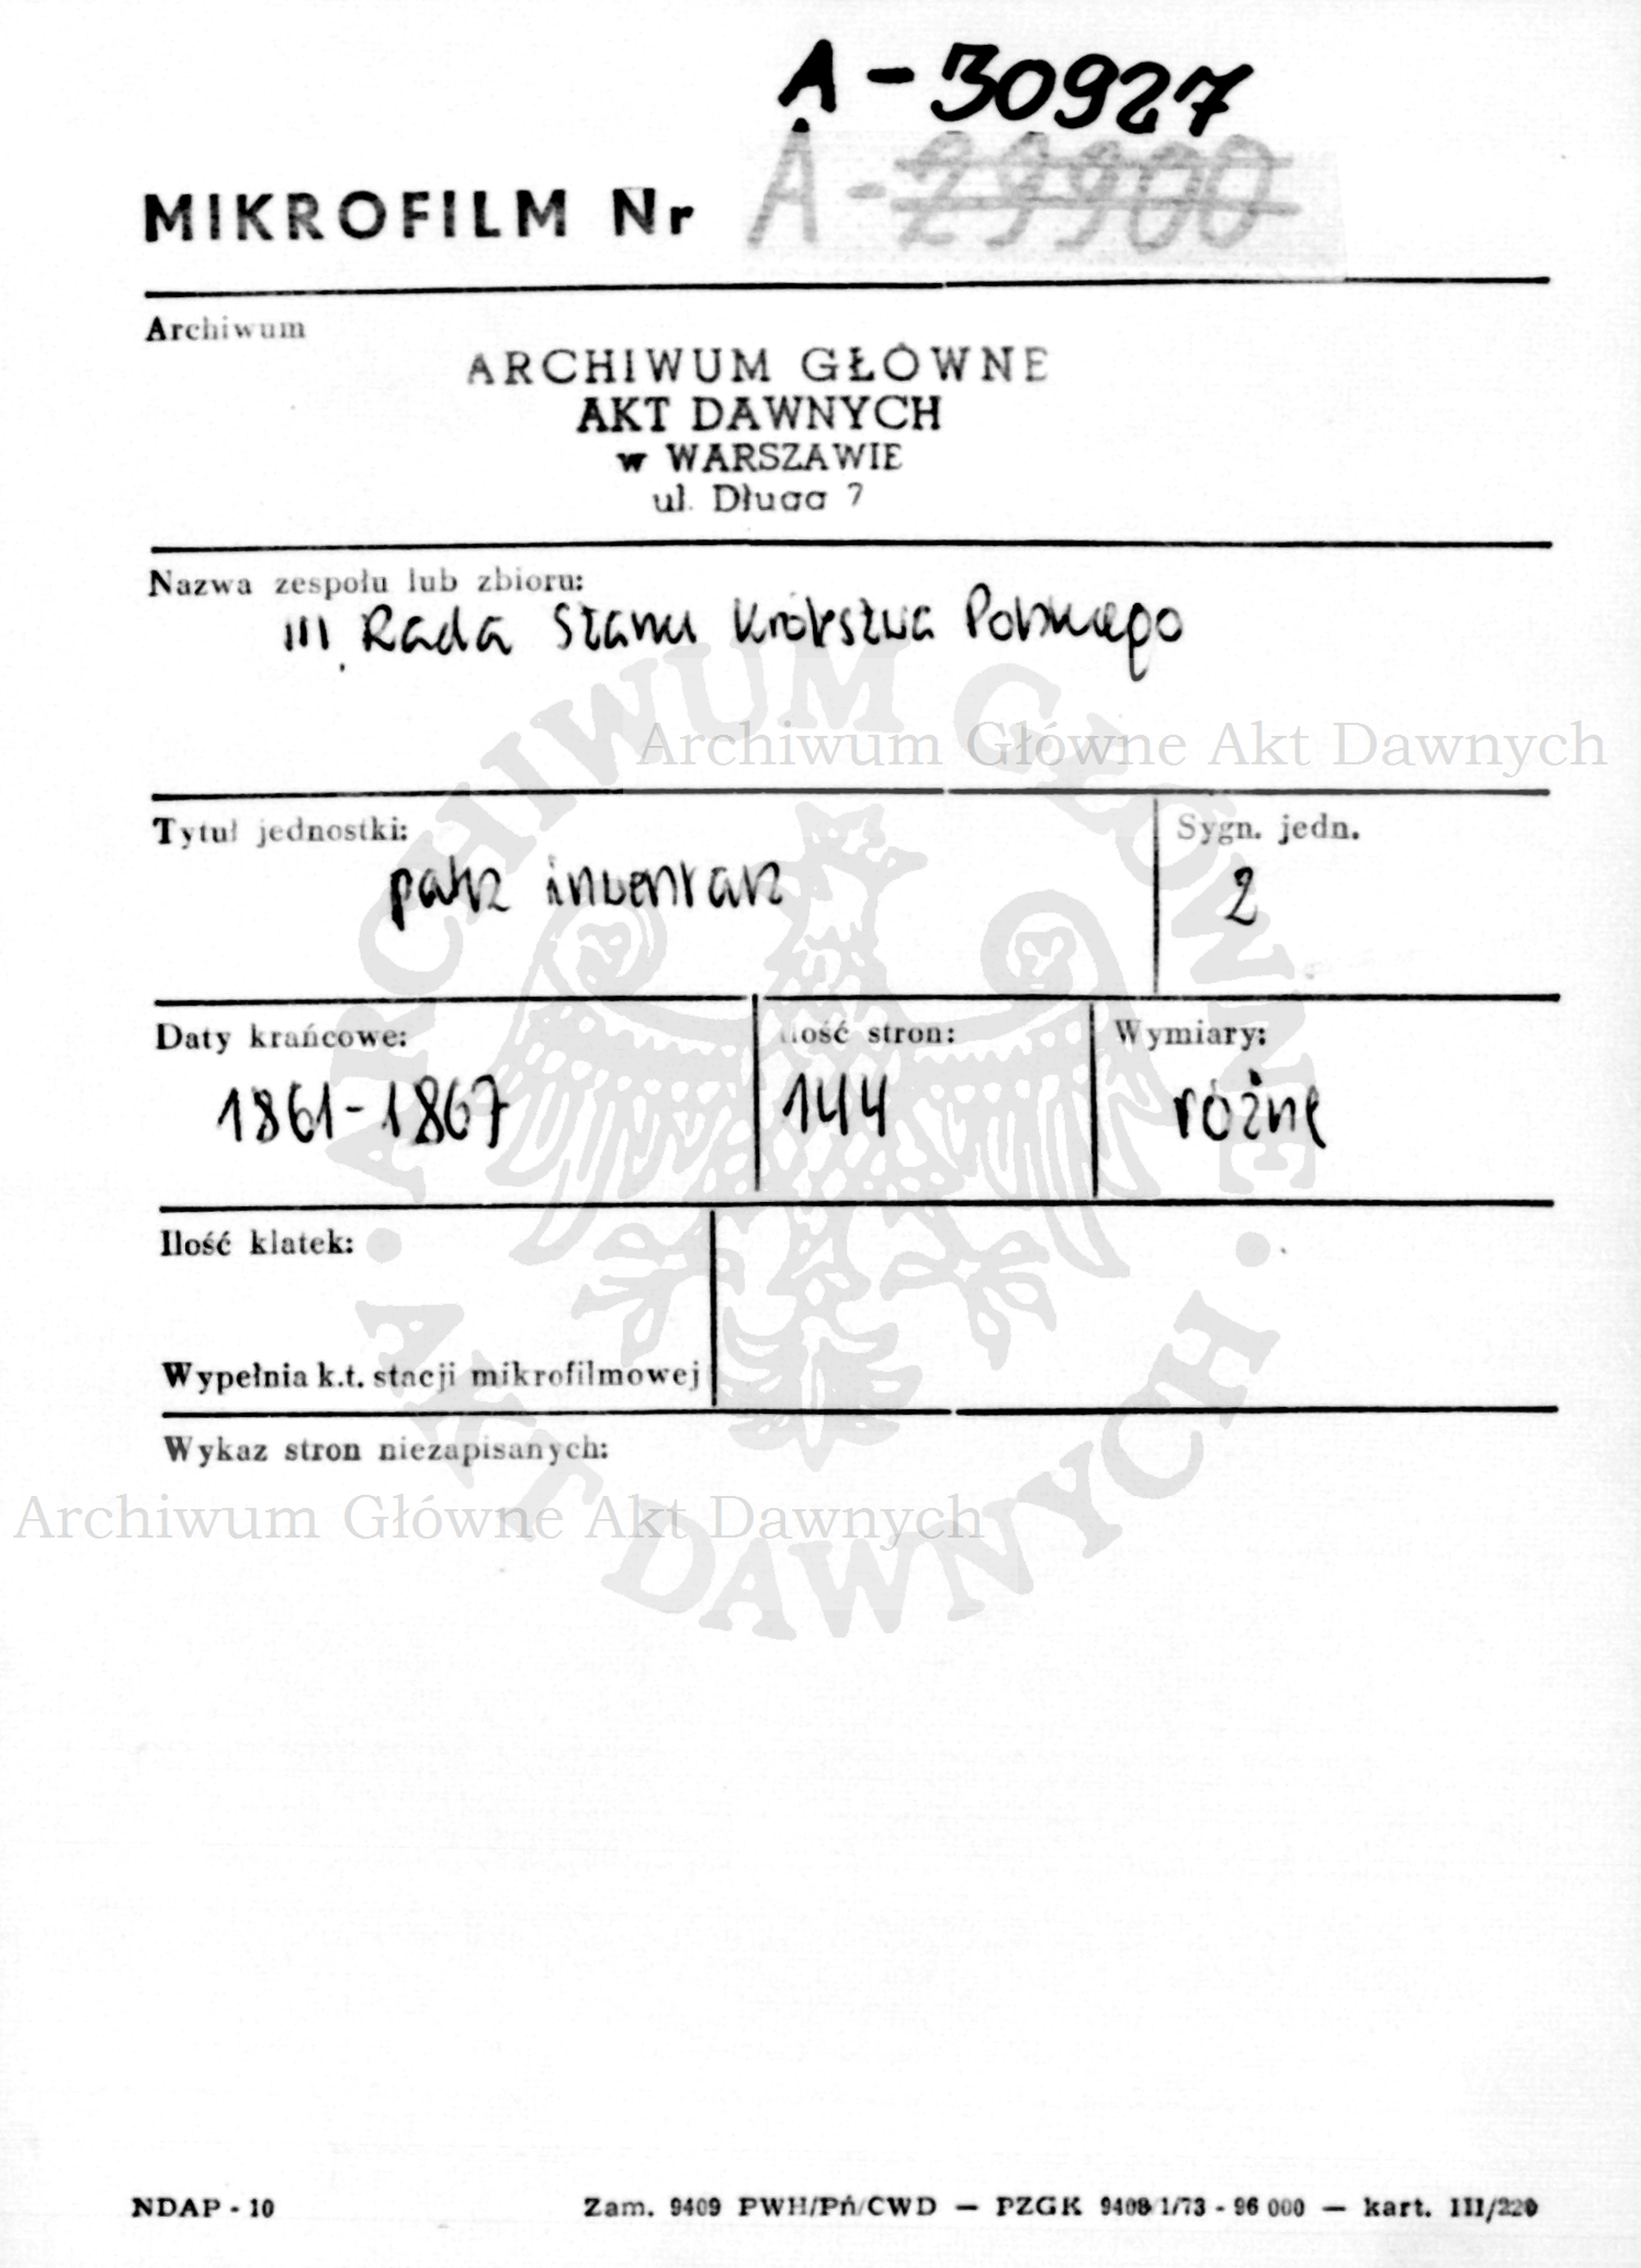 A-30927
MIKROFILM Nr A-29900
Archiwum
ARCHIWUM GŁÓWNE
AKT DAWNYCH
w WARSZAWIE
ul. Długa 7
Nazwa zespołu lub zbioru:
III Rada Stanu Królestwa Polskiego
Archiwum Główne Akt Dawnych
Tytuł jednostki:
Sygn. jedn.
patrz inwentarz
2
Daty krańcowe:
Ilość stron:
Wymiary:
1861-1867
144
różne
Ilość klatek:
Wypełnia k.t. stacji mikrofilmowej
Wykaz stron niezapisanych:
Archiwum Główne Akt Dawnych
ARCHIWUM GŁÓWNE
AKT DAWNYCH
NDAP - 10
Zam. 9409 PWH/Pń/CWD — PZGK 9408 1/73 - 96 000 — kart. III/220